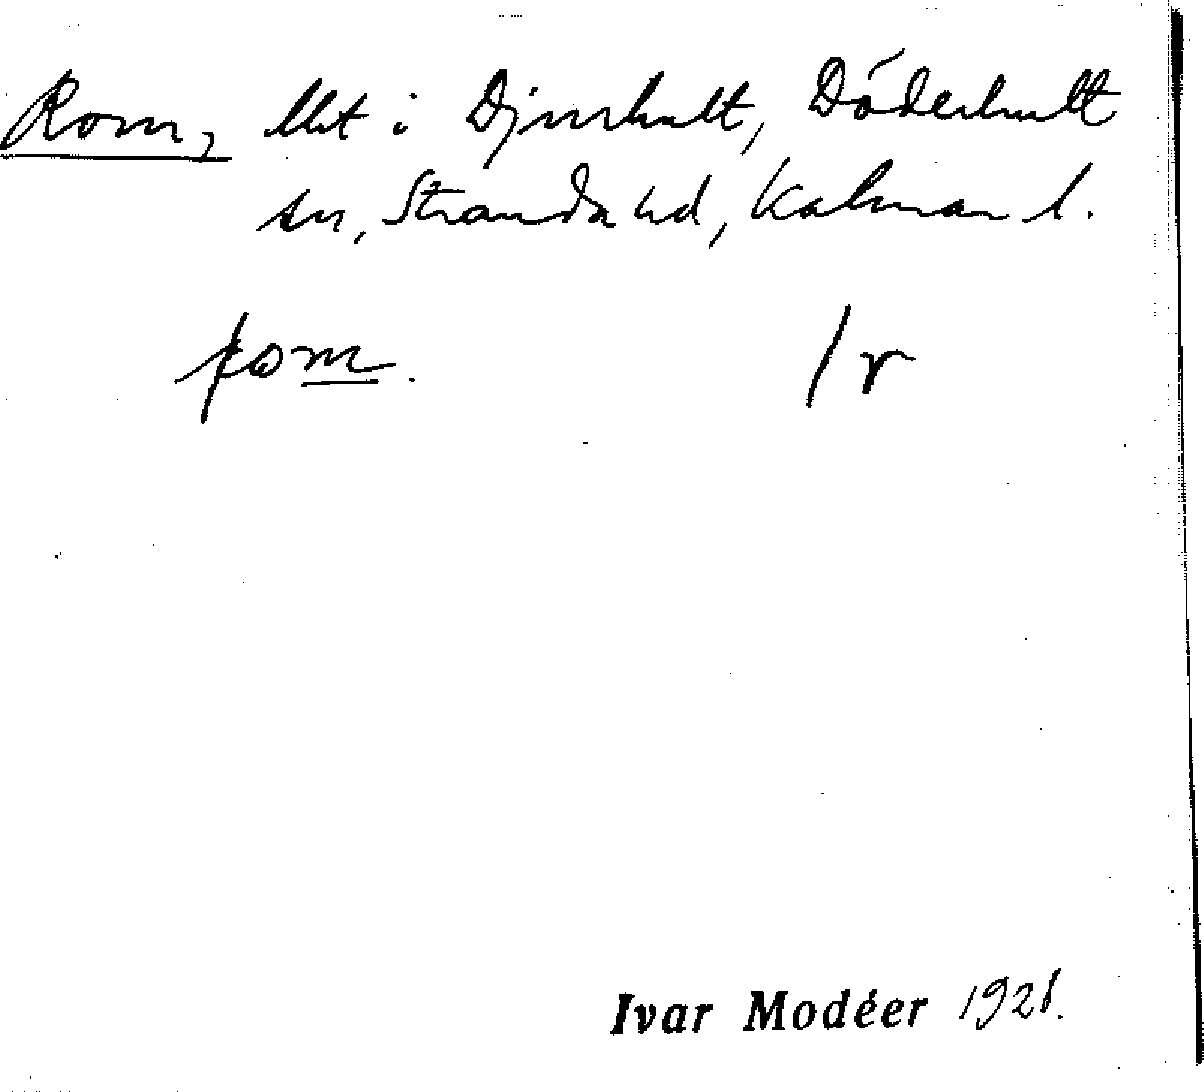 Rom, lht i Djurhult, Döderhult
sn, Stranda hd, Kalmar l.
rom. / r
Ivar Modéer 1921.